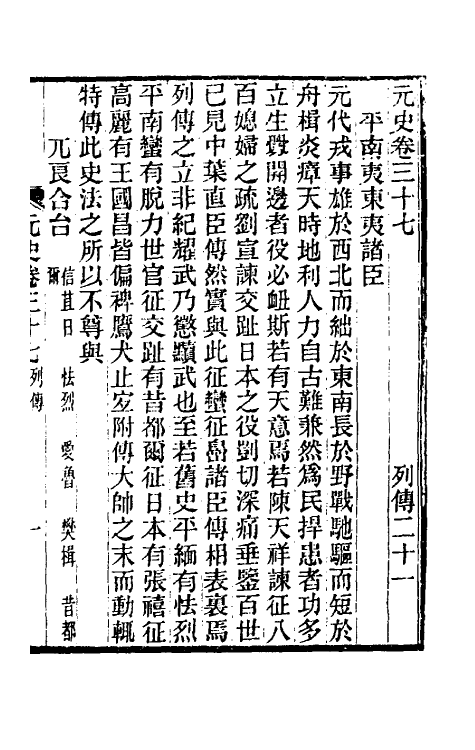 元史卷三十七　　　列傳二十一
平南夷東夷諸臣
元代戎事雄於西北而絀於東南長於野戰馳驅而短於
舟楫炎瘴天時地利人力自古難兼然爲民捍患者功多
立生釁開邊者役必衂斯若有天意焉若陳天祥諫征八
百媳婦之疏劉宣諫交趾日本之役剴切深痛垂鑒百世
已見中葉直臣傳然實與此征蠻征島諸臣傳相表裏焉
列傳之立非紀耀武乃懲黷武也至若舊史平緬有怯烈
平南蠻有脫力世官征交趾有昔都爾征日本有張禧征
高麗有王國昌皆偏裨鷹犬止宜附傳大帥之末而動輒
特傳此史法之所以不尊與
兀良合台　信苴日　怯烈　愛魯　樊楫　昔都
爾
元史卷三十七 列傳　一